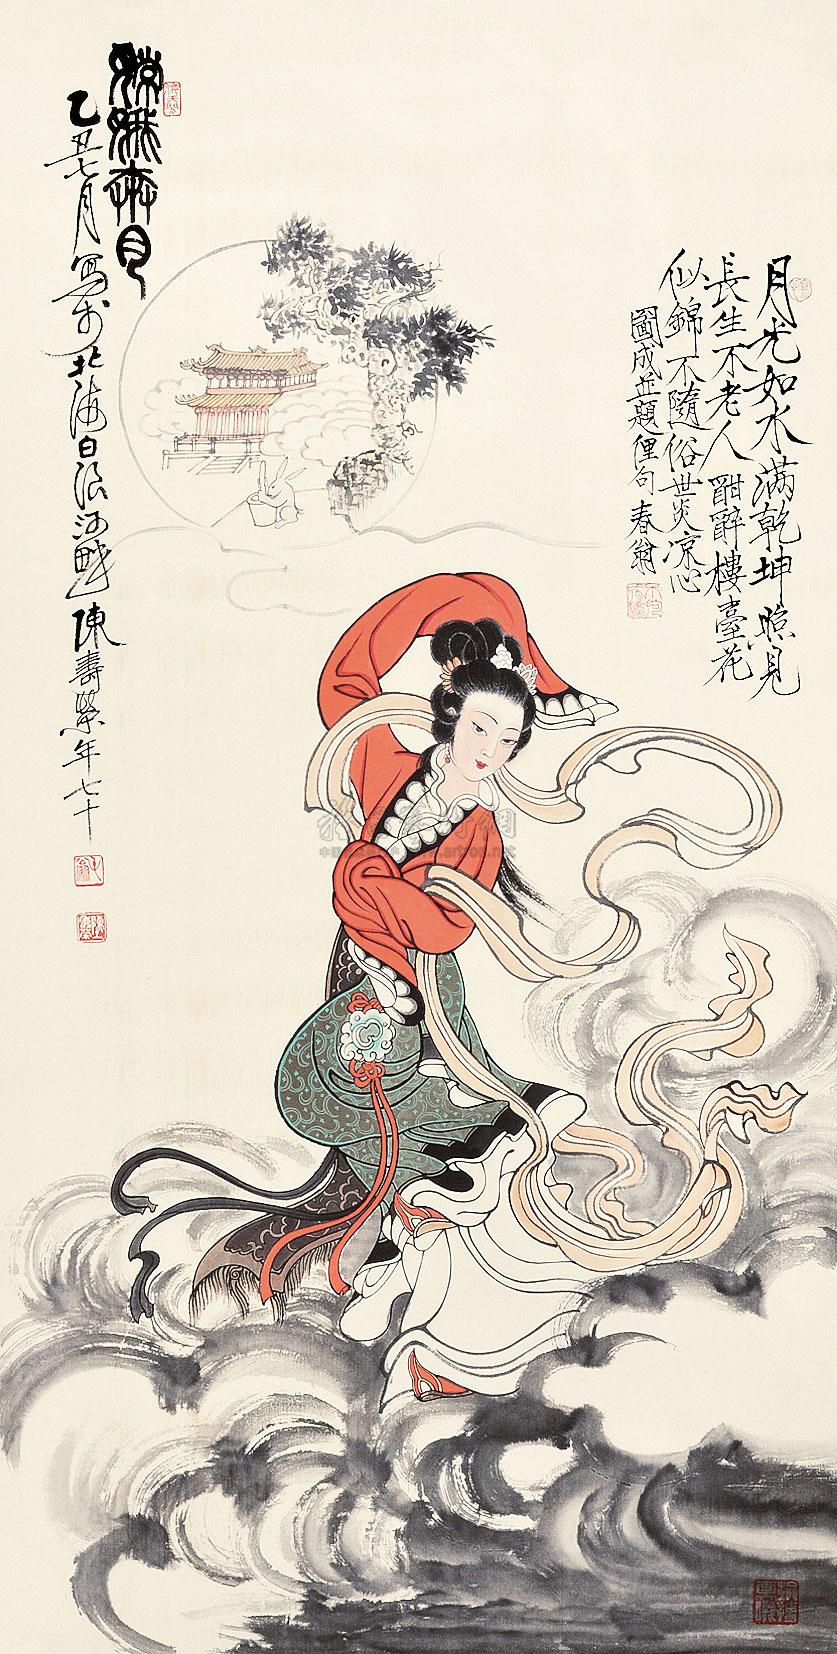 月光如水满乾坤照見
長生不老人酣醉樓臺花
似錦不隨俗世炎凉心
圖成並題俚句春翁
嫦娥奔月
乙丑七月寫於北海白浪河畔陳壽榮年七十
www.artron.net